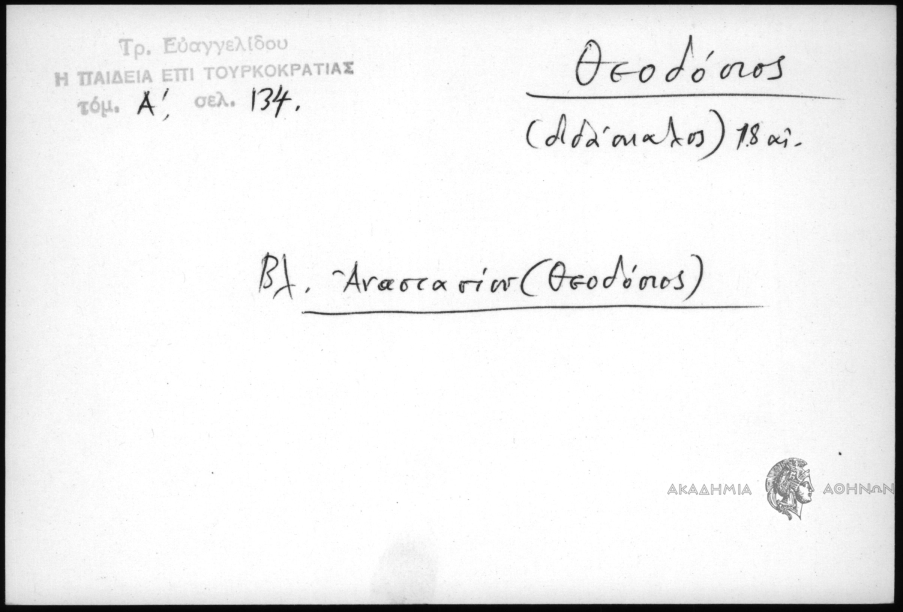 Τρ. Εὐαγγελίδου
Η ΠΑΙΔΕΙΑ ΕΠΙ ΤΟΥΡΚΟΚΡΑΤΙΑΣ
τόμ. Α', σελ. 134.
Θεοδόσιος
(διδάσκαλος) 18 αἰ.
Βλ. Ἀναστασίου (Θεοδόσιος)
ΑΚΑΔΗΜΙΑ ΑΘΗΝΩΝ